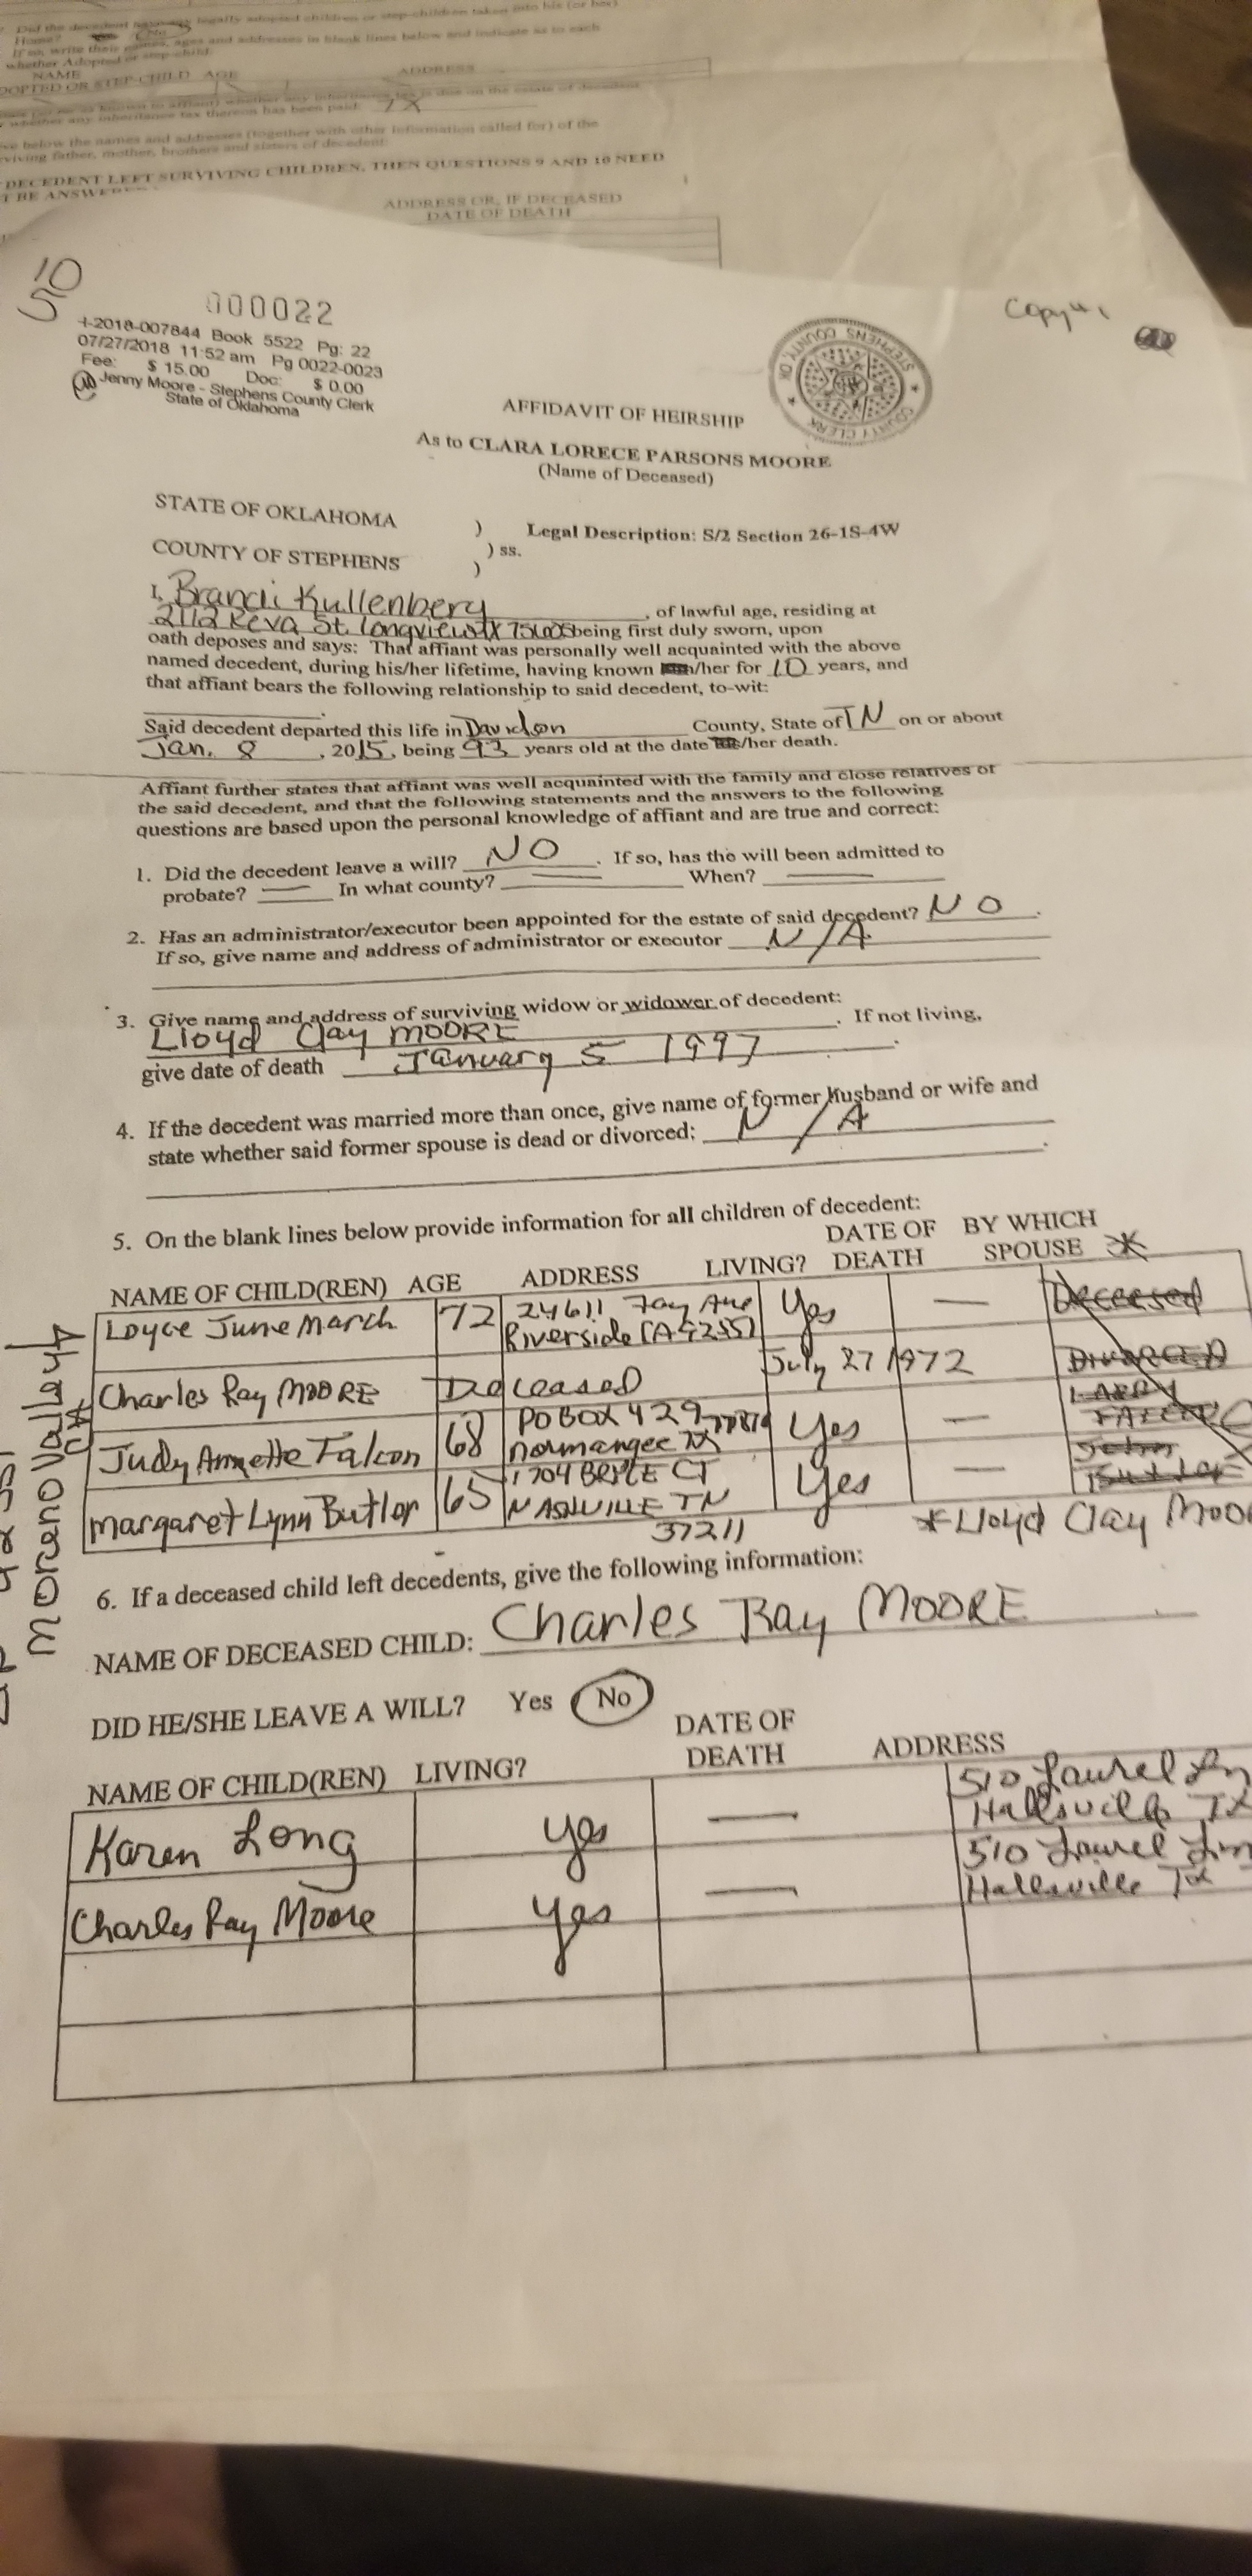 Did the decedent legally adopted children or step-children taken into his (or her)
Home? No
If so, write their names, ages and addresses in blank lines below and indicate as to each
whether Adopted or step-child:
NAME
OPTED OR STEP-CHILD AGE ADDRESS
whether any inheritance tax is due on the estate of decedent
whether any inheritance tax thereon has been paid:
ve below the names and addresses (together with other information called for) of the
viving father, mother, brothers and sisters of decedent:
DECEDENT LEFT SURVIVING CHILDREN, THEN QUESTIONS 9 AND 10 NEED
T BE ANSWE
ADDRESS OR, IF DECEASED
DATE OF DEATH
10
5
000022
I-2018-007844 Book 5522 Pg: 22
07/27/2018 11:52 am Pg 0022-0023
Fee: $ 15.00 Doc: $ 0.00
Jenny Moore - Stephens County Clerk
State of Oklahoma
Copy
STEPHENS COUNTY, OK
COUNTY CLERK
AFFIDAVIT OF HEIRSHIP
As to CLARA LORECE PARSONS MOORE
(Name of Deceased)
STATE OF OKLAHOMA )
Legal Description: S/2 Section 26-1S-4W
) ss.
COUNTY OF STEPHENS )
I, Brandi Kullenberg, of lawful age, residing at
2112 Reva St. Longview TX 75605 being first duly sworn, upon
oath deposes and says: That affiant was personally well acquainted with the above
named decedent, during his/her lifetime, having known /her for 10 years, and
that affiant bears the following relationship to said decedent, to-wit:
Said decedent departed this life in Davidson County, State of TN on or about
Jan. 8, 2015, being 93 years old at the date /her death.
Affiant further states that affiant was well acquainted with the family and close relatives of
the said decedent, and that the following statements and the answers to the following
questions are based upon the personal knowledge of affiant and are true and correct:
1. Did the decedent leave a will? NO. If so, has the will been admitted to
probate? — In what county? — When? —
2. Has an administrator/executor been appointed for the estate of said decedent? NO.
If so, give name and address of administrator or executor N/A
3. Give name and address of surviving widow or widower of decedent:
Lloyd Clay MOORE. If not living,
give date of death January 5 1997.
4. If the decedent was married more than once, give name of former husband or wife and
state whether said former spouse is dead or divorced: N/A.
5. On the blank lines below provide information for all children of decedent:
DATE OF BY WHICH
NAME OF CHILD(REN) AGE ADDRESS LIVING? DEATH SPOUSE *
Loyce June March 72 24611 Fay Ave Yes — Deceased
Riverside CA 92551
Charles Ray MOORE Deceased July 27 1972 DIVORCED
Judy Annette Falcon 68 PO BOX 429 77871 Yes — LARRY FALCON
Normangee TX
Margaret Lynn Butler 65 1704 CT Yes — John Butler
NASHVILLE TN
37211
*Lloyd Clay Moor
Moreno Valley
CA
6. If a deceased child left decedents, give the following information:
NAME OF DECEASED CHILD: Charles Ray MOORE
DID HE/SHE LEAVE A WILL? Yes No
DATE OF
NAME OF CHILD(REN) LIVING? DEATH ADDRESS
Karen Long yes — 510 Laurel Ln
Hallsville TX
Charles Ray Moore yes — 510 Laurel Ln
Hallsville TX